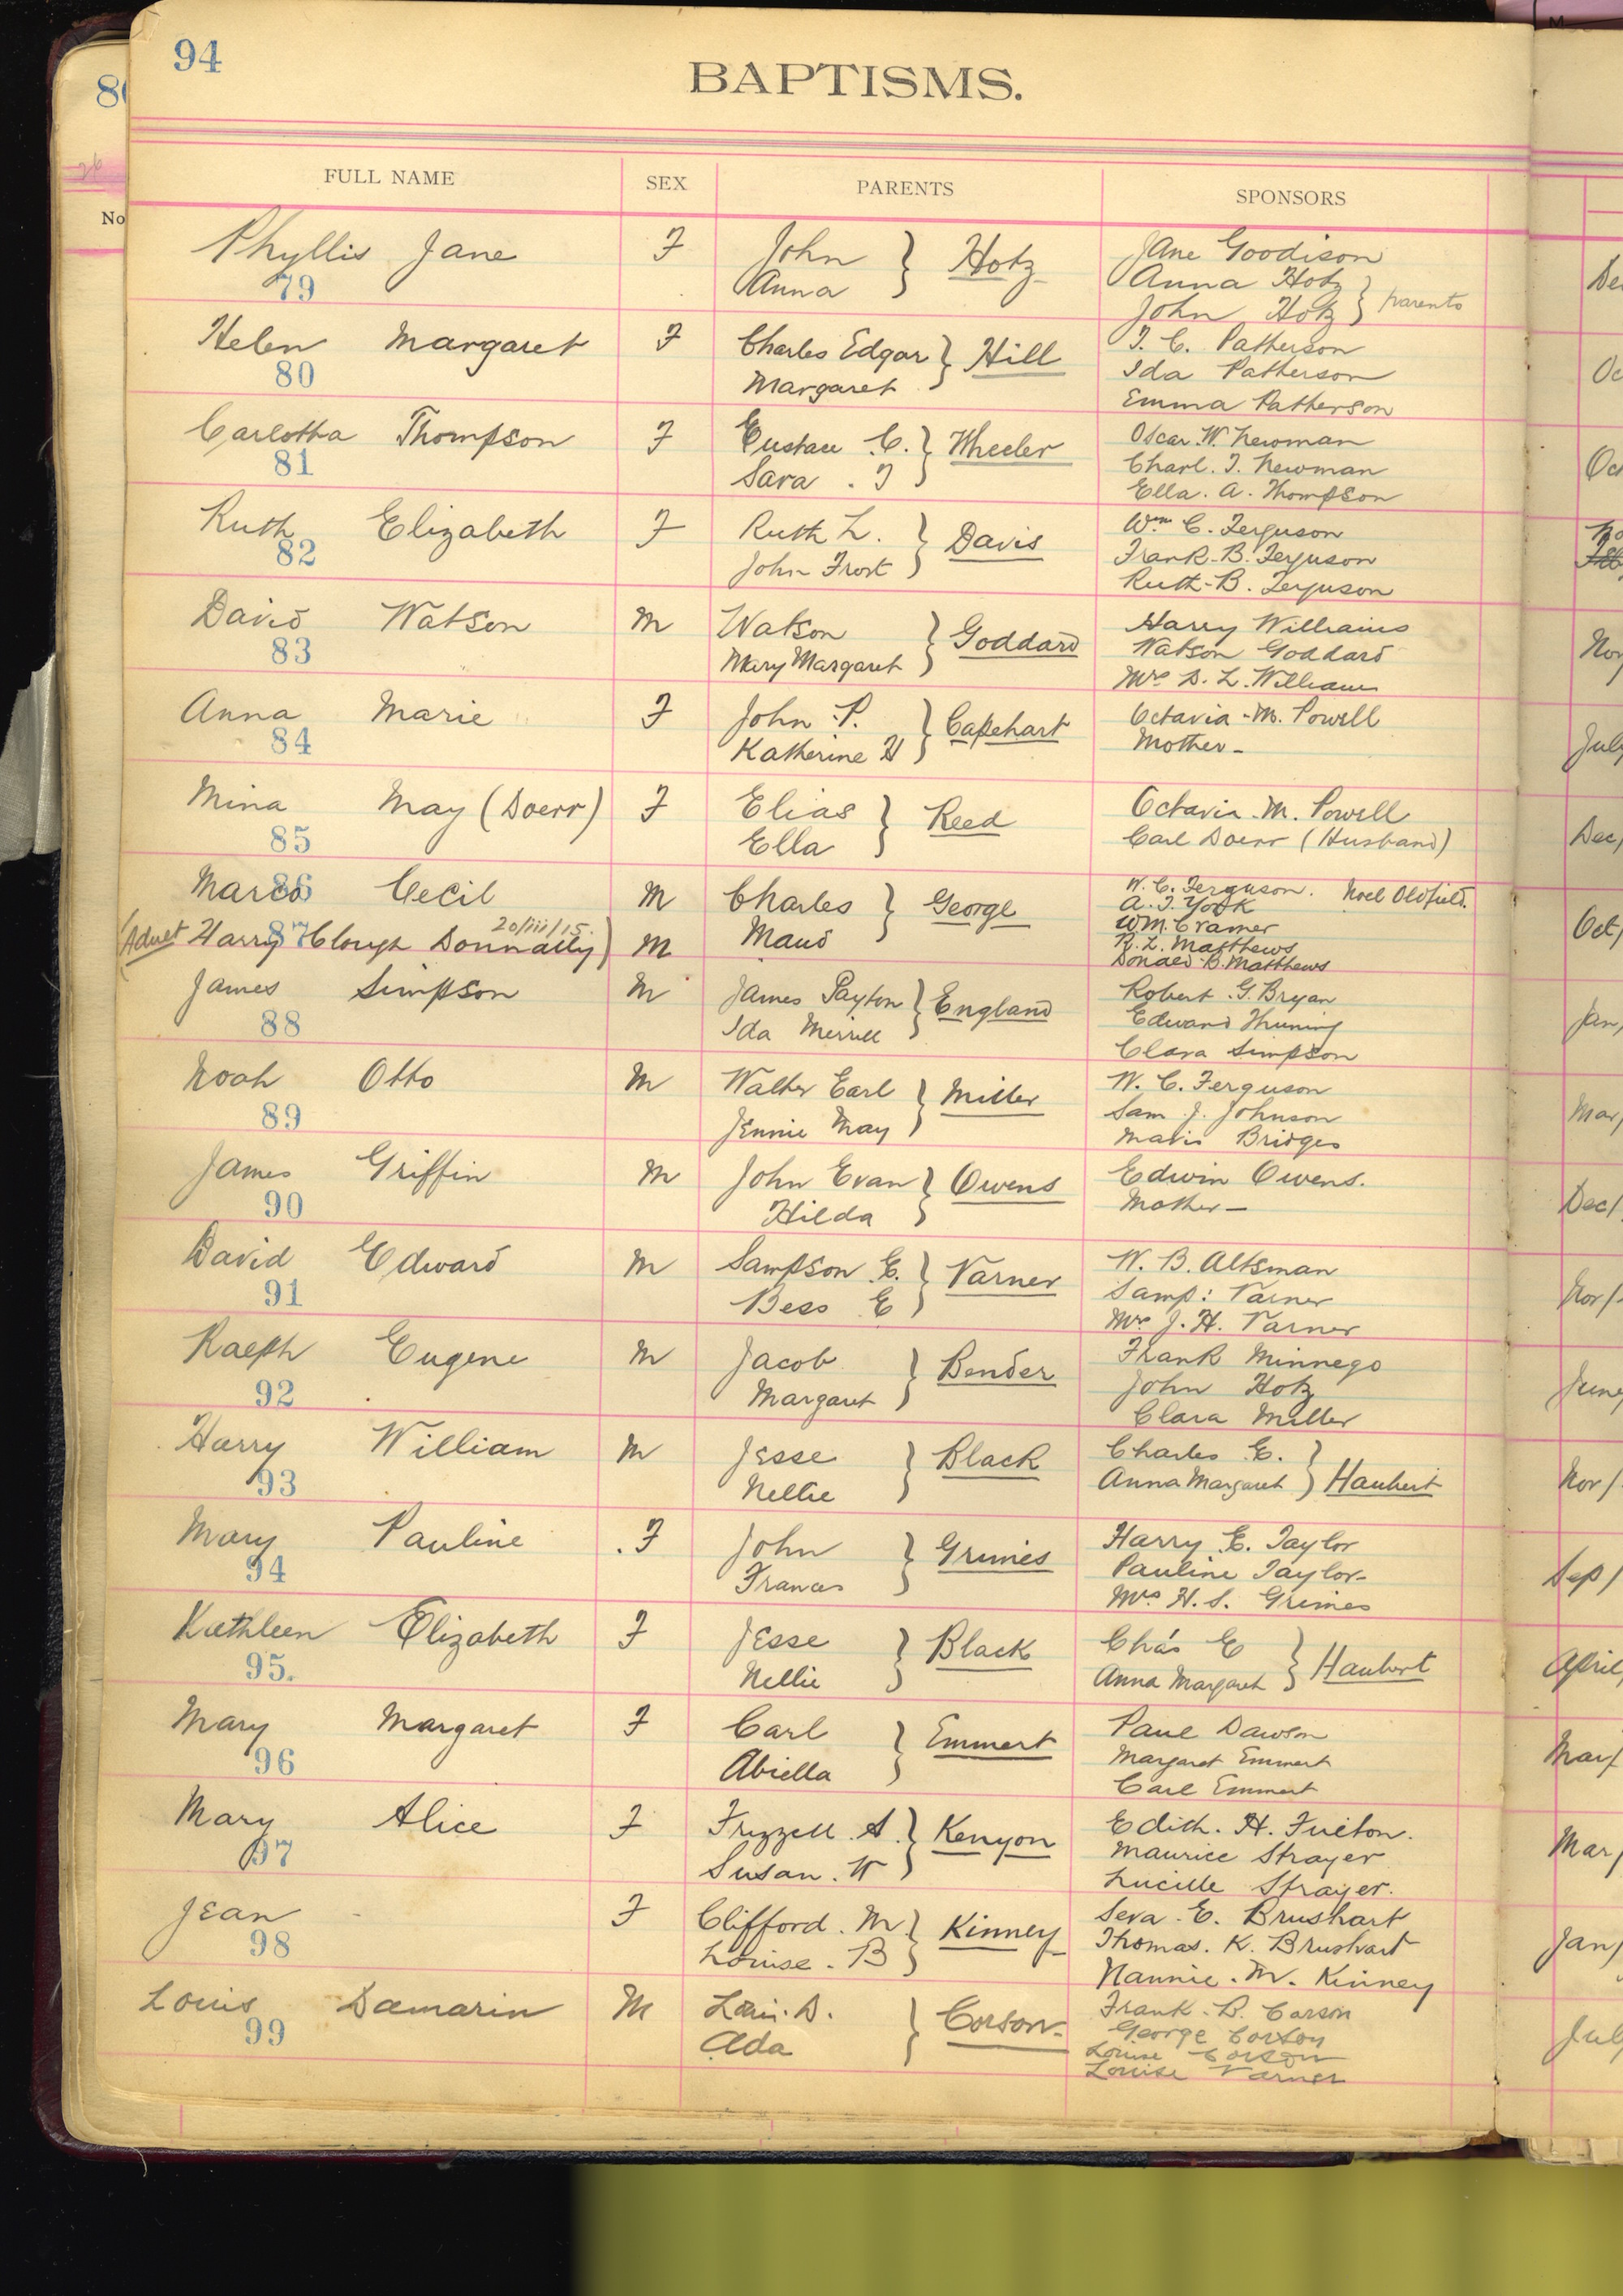 94
BAPTISMS.
FULL NAME SEX PARENTS SPONSORS
No
Phyllis Jane F John } Hotz Jane Goodison
79 Anna Anna Hotz } parents
John Hotz
Helen Margaret F Charles Edgar } Hill T. C. Patterson
80 Margaret Ida Patterson
Emma Patterson
Carlotta Thompson F Eustace C. } Wheeler Oscar W. Newman
81 Sara . T Charl. T. Newman
Ella. A. Thompson
Ruth Elizabeth F Ruth L. } Davis Wm C. Ferguson
82 John Frost Frank. B. Ferguson
Ruth. B. Ferguson
David Watson M Watson } Goddard Harry Williams
83 Mary Margaret Watson Goddard
Mrs D. L. Williams
Anna Marie F John P. } Capehart Octavia. M. Powell
84 Katherine H Mother
Mina May (Doerr) F Elias } Reed Octavia. M. Powell
85 Ella Carl Doerr (Husband)
Marco Cecil M Charles } George W. C. Ferguson. Noel Oldfield.
86 A. T. York
20/iii/15. Maud Wm. Cramer
(Adult Harry Clough Donnally) M R. L. Matthews
87 Donald B. Matthews
James Simpson M James Payton } England Robert. G. Bryan
88 Ida Merrill Edward
Clara Simpson
Noah Otto M Walter Earl } Miller W. C. Ferguson
89 Jennie May Sam J. Johnson
Mavis Bridges
James Griffin M John Evan } Owens Edwin Owens.
90 Hilda Mother —
David Edward M Sampson E. } Varner W. B. Altsman
91 Bess E Samp: Varner
Mrs J. H. Varner
Ralph Eugene M Jacob } Bender Frank Minnego
92 Margaret John Hotz
Clara Miller
Harry William M Jesse } Black Charles E. } Haubert
93 Nellie Anna Margaret
Mary Pauline F John } Grimes Harry E. Taylor
94 Frances Pauline Taylor
Mrs H. S. Grimes
Kathleen Elizabeth F Jesse } Black Chas E } Haubert
95. Nellie Anna Margaret
Mary Margaret F Carl } Emmert Paul Dawson
96 Abiella Margaret Emmert
Carl Emmert
Mary Alice F Frizzell. A. } Kenyon Edith. H. Fulton.
97 Susan. W Maurice Strayer
Lucille Strayer.
Jean F Clifford. M. } Kinney Seva. E. Brushart
98 Louise. B Thomas. K. Brushart
Nannie. M. Kinney
Louis Damarin M Louis. D. } Corson Frank. B. Corson
99 Ada George Corson
Louise Corson
Louise Varner